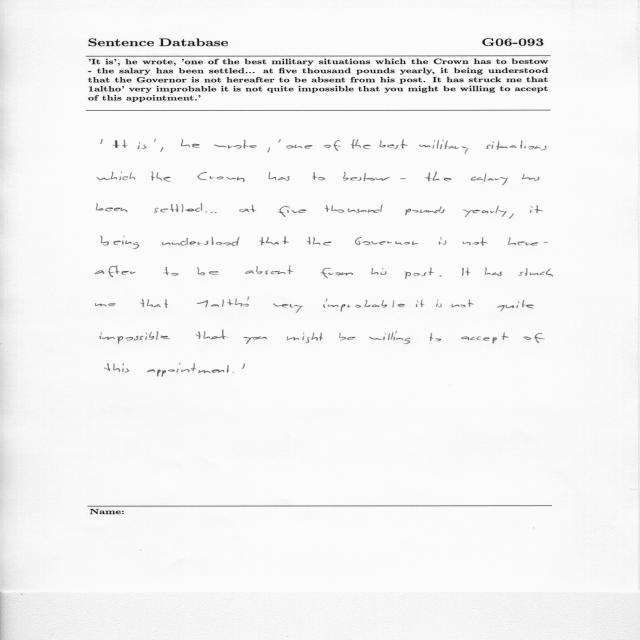 Sentence Database G06-093
'It is', he wrote, 'one of the best military situations which the Crown has to bestow
- the salary has been settled... at five thousand pounds yearly, it being understood
that the Governor is not hereafter to be absent from his post. It has struck me that
1altho' very improbable it is not quite impossible that you might be willing to accept
of this appointment.'
'It is', he wrote, 'one of the best military situations
which the Crown has to bestow - the salary has
been settled... at five thousand pounds yearly, it
being understood that the Governor is not here-
after to be absent from his post. It has struck
me that 1altho' very improbable it is not quite
impossible that you might be willing to accept of
this appointment.'
Name: